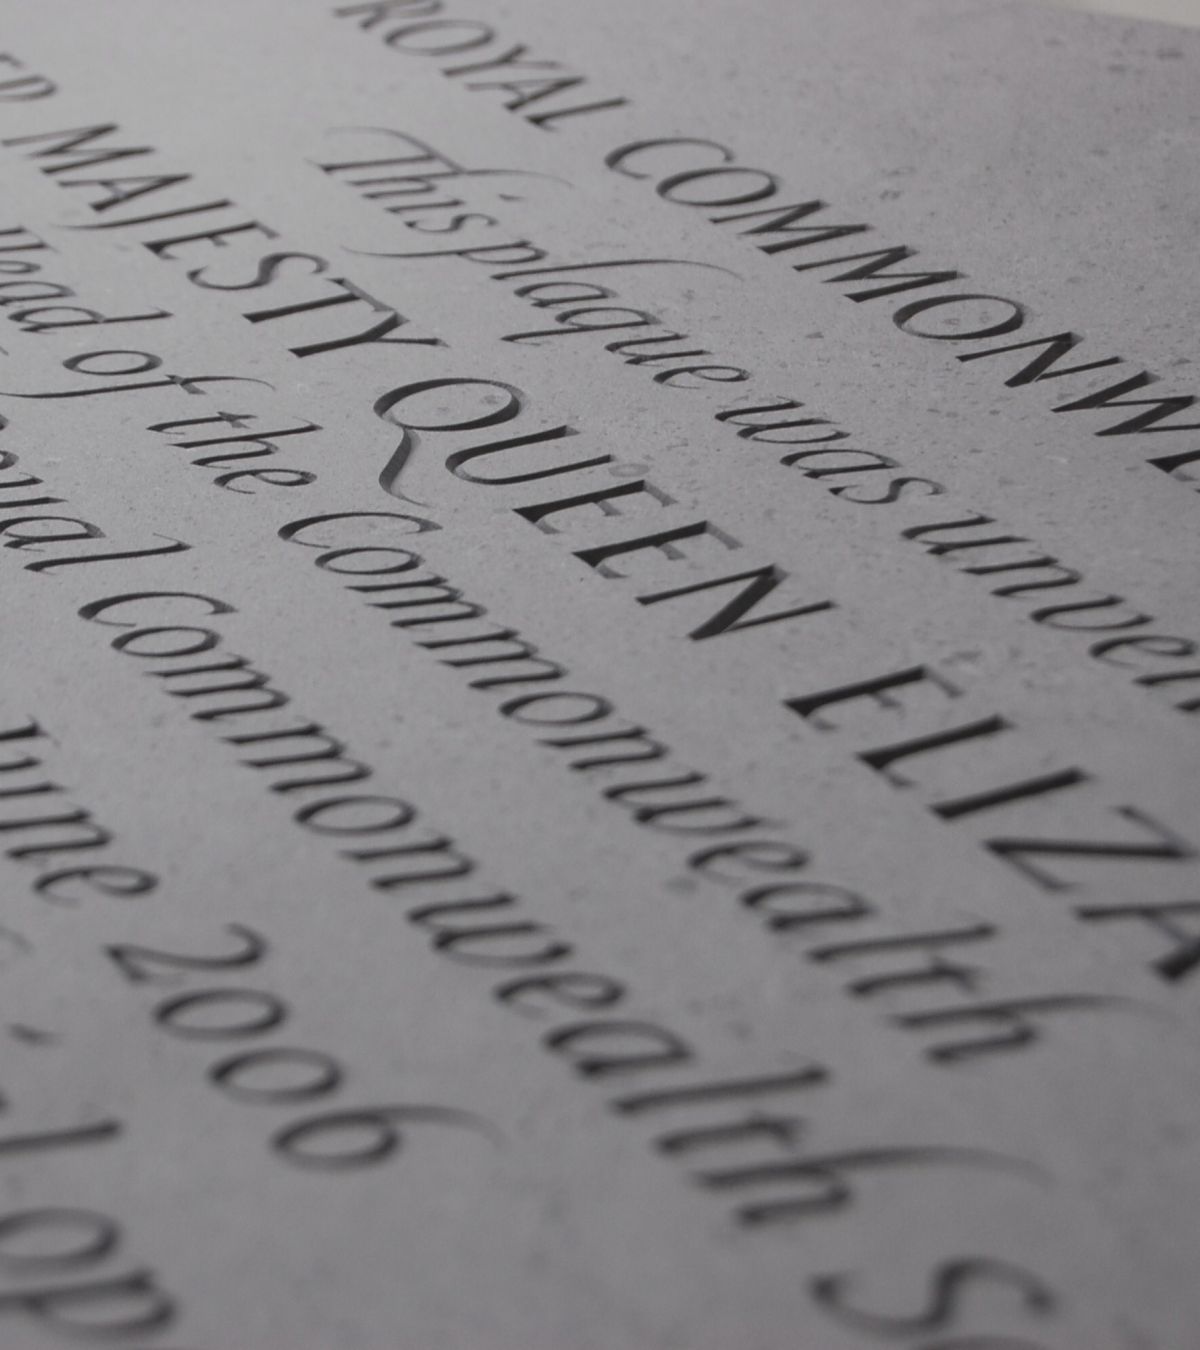 ROYAL COMMONWE
This plaque was unveil
HER MAJESTY QUEEN ELIZA
Head of the Commonwealth
oyal Commonwealth So
June 2006
l op